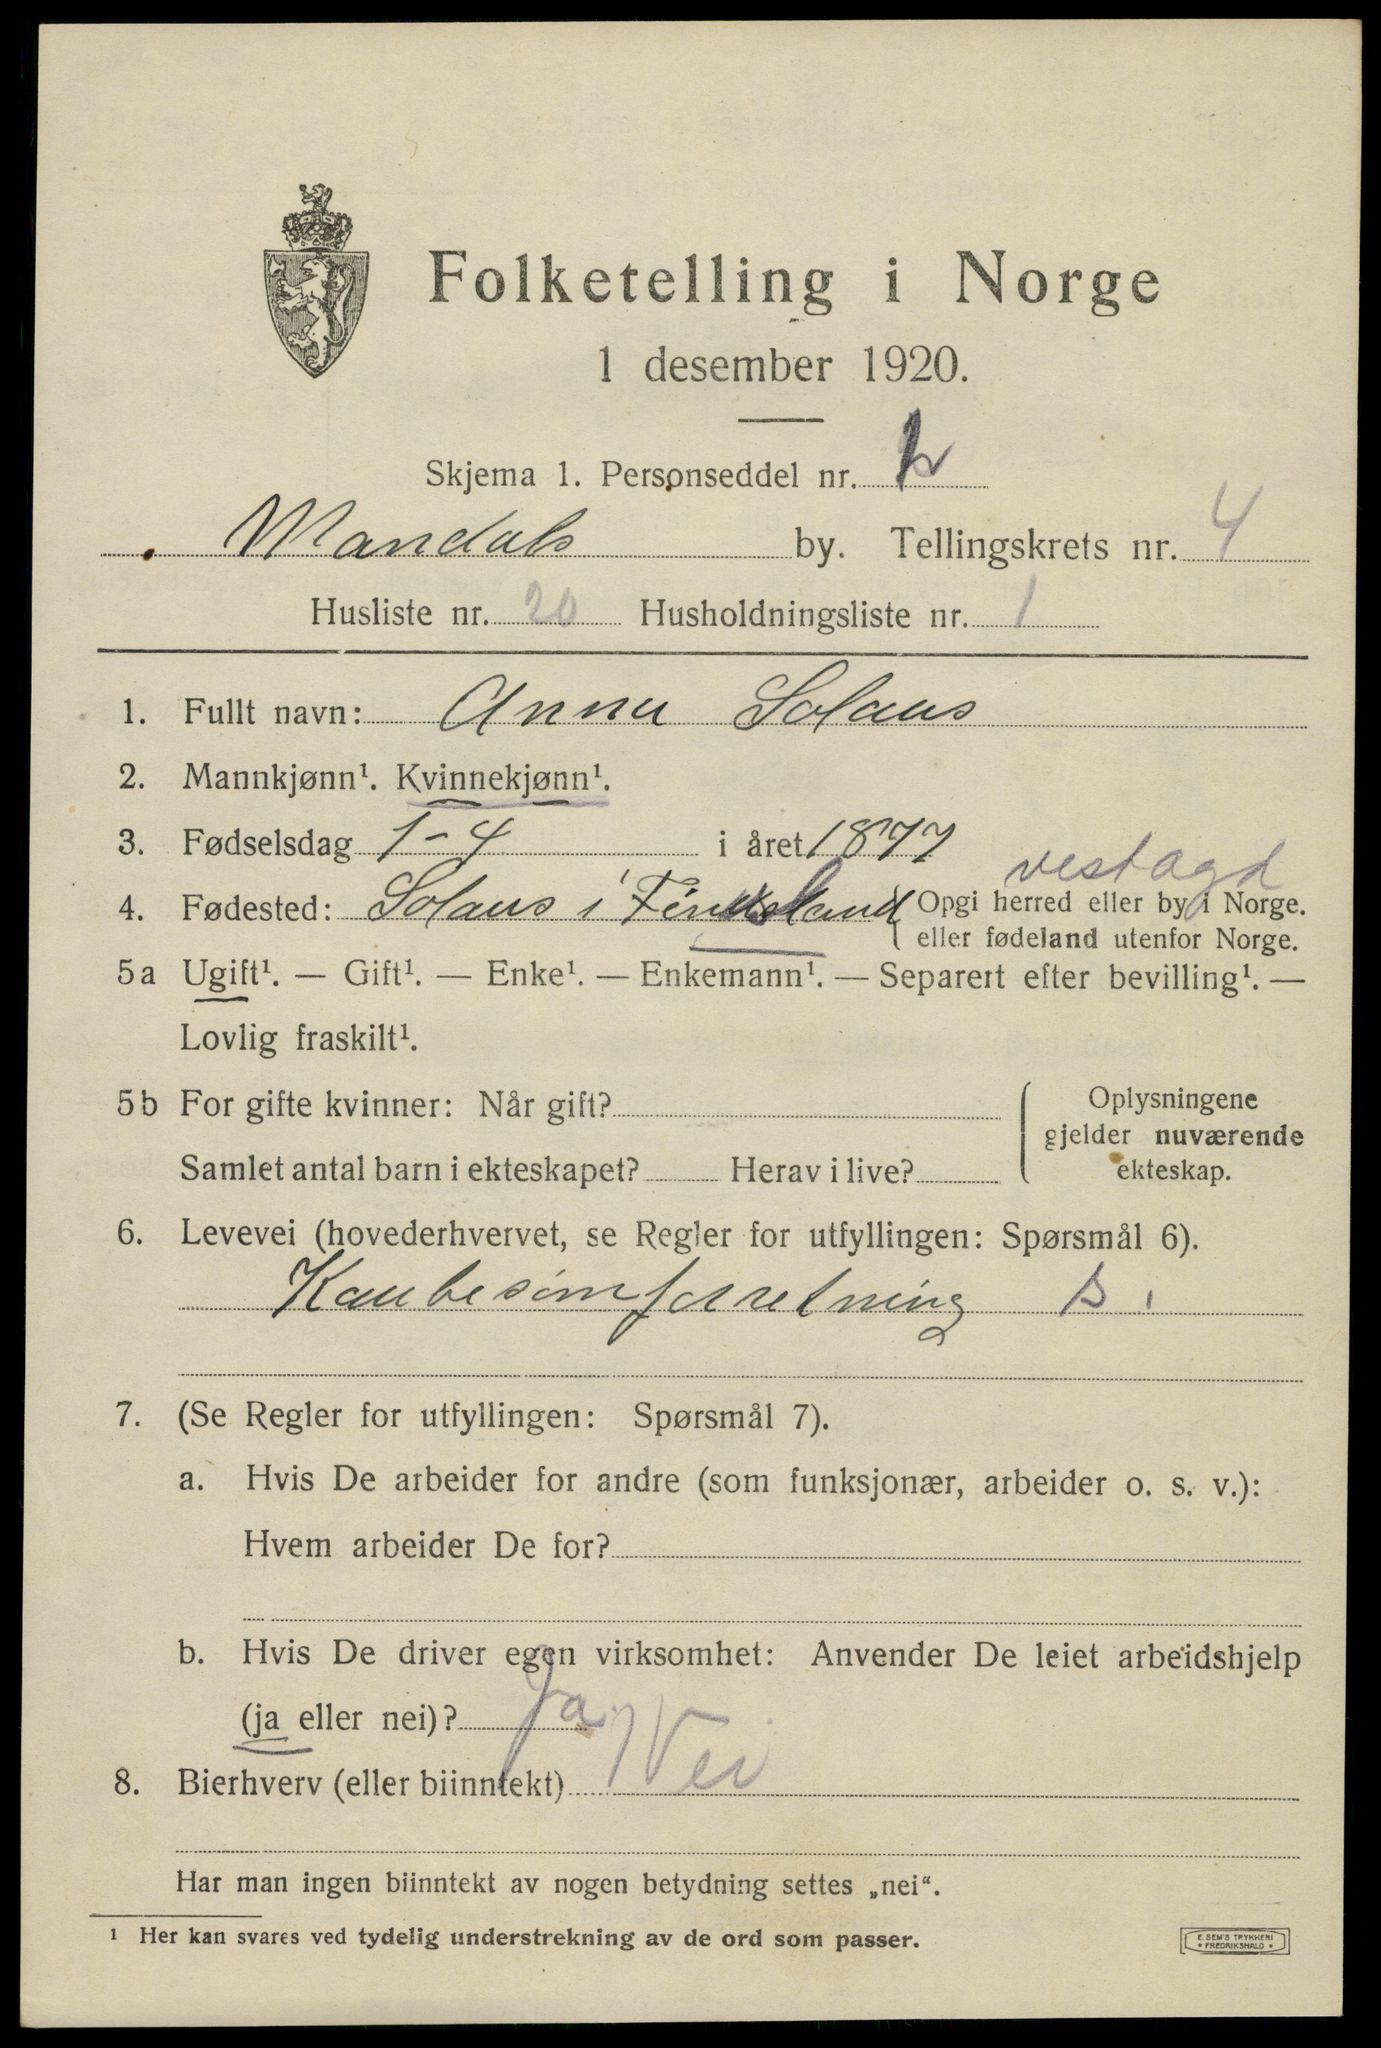 Folketelling i Norge
1 desember 1920.
Skjema 1. Personseddel nr. 2
Mandals by. Tellingskrets nr. 4
Husliste nr. 20 Husholdningsliste nr. 1
1. Fullt navn: Anna Solaas
2. Mannkjønn¹. Kvinnekjønn¹.
3. Fødselsdag 1-4 i året 1877
vestagd
4. Fødested: Solaas i Finsland { Opgi herred eller by i Norge.
eller fødeland utenfor Norge.
5a Ugift¹. — Gift¹. — Enke¹. — Enkemann¹. — Separert efter bevilling¹. —
Lovlig fraskilt¹.
5b For gifte kvinner: Når gift?
Samlet antal barn i ekteskapet? Herav i live?
Oplysningene
gjelder nuværende
ekteskap.
6. Levevei (hovederhvervet, se Regler for utfyllingen: Spørsmål 6).
7. (Se Regler for utfyllingen: Spørsmål 7).
a. Hvis De arbeider for andre (som funksjonær, arbeider o. s. v.):
Hvem arbeider De for?
b. Hvis De driver egen virksomhet: Anvender De leiet arbeidshjelp
(ja eller nei)? Ja
8. Bierhverv (eller biinntekt) Nei
Har man ingen biinntekt av nogen betydning settes „nei“.
¹ Her kan svares ved tydelig understrekning av de ord som passer.
E. SEM'S TRYKKERI
• FREDRIKSHALD •